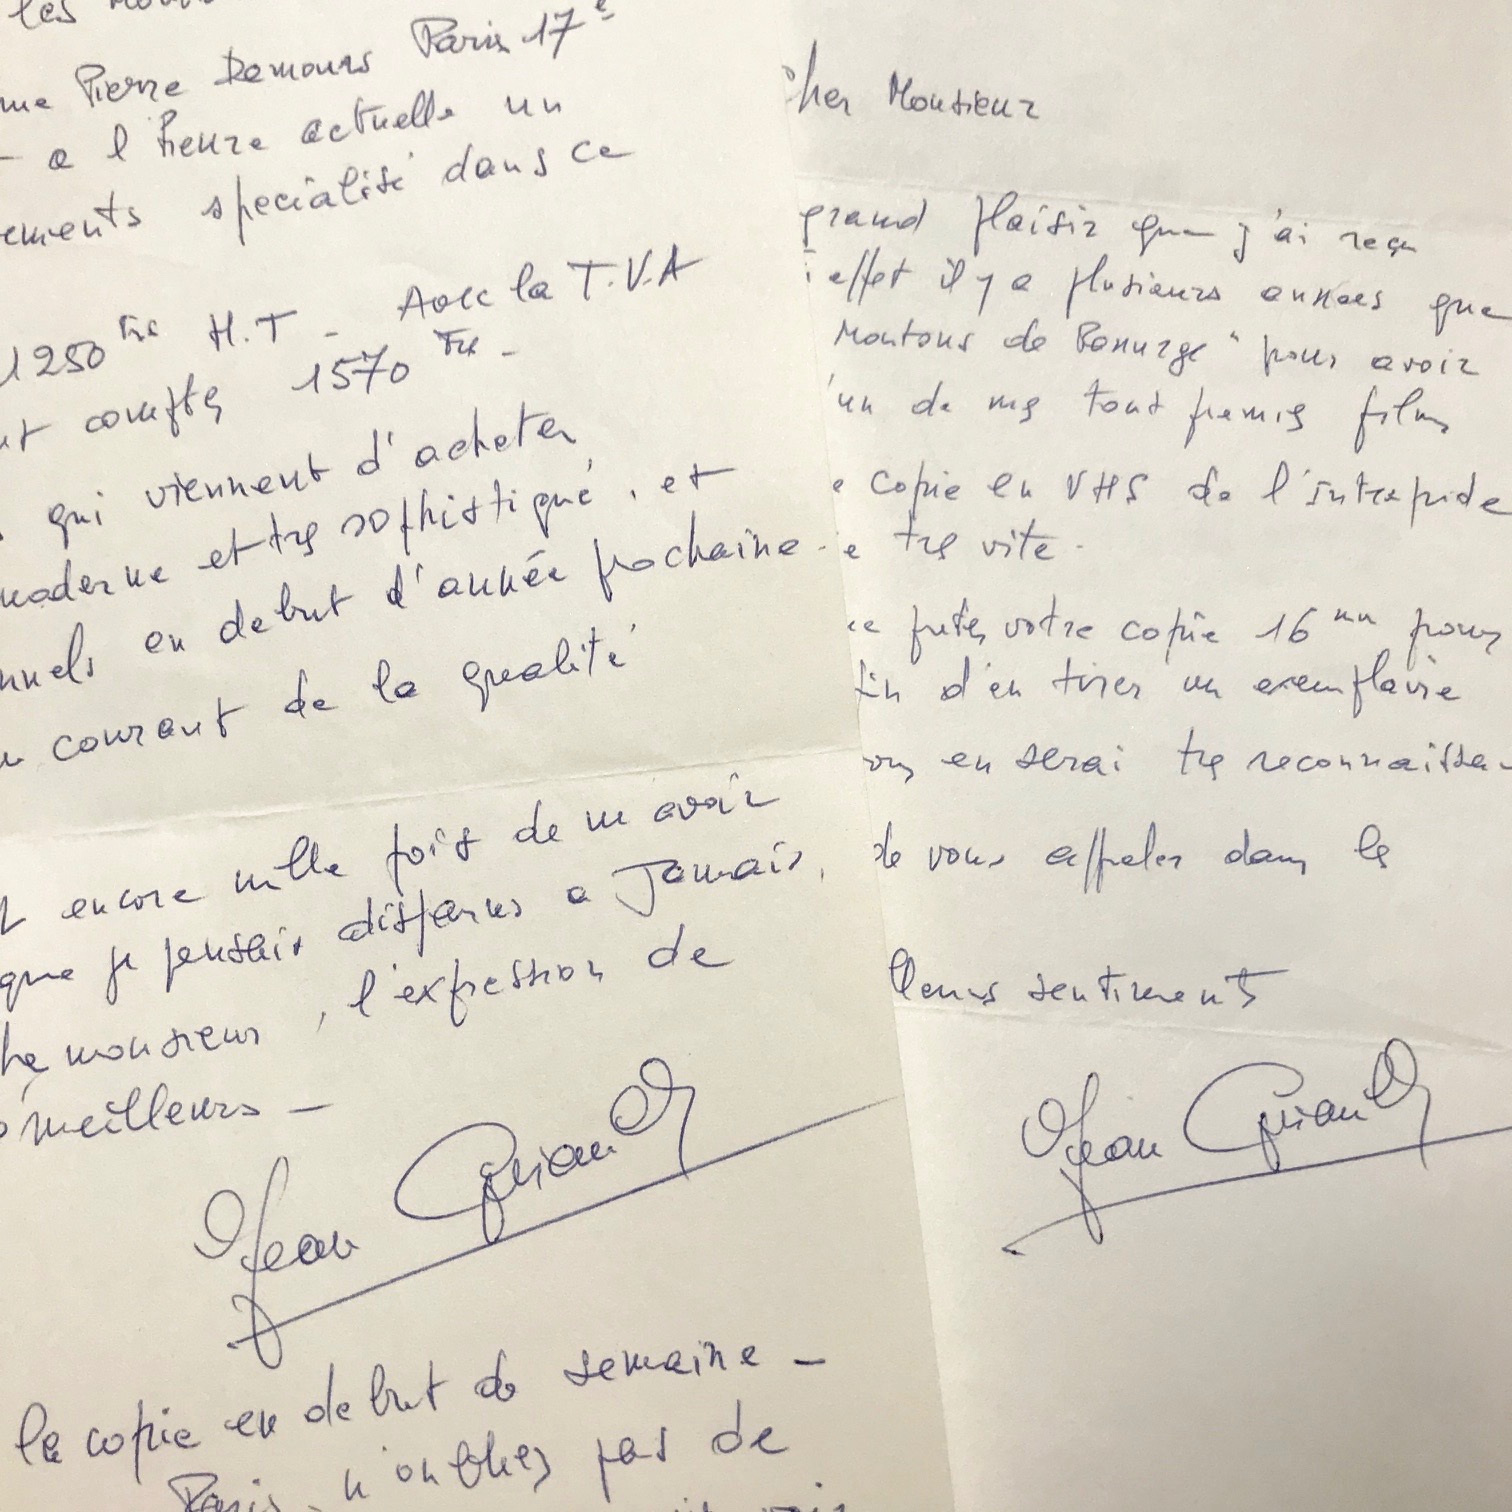 les
me Pierre Demours Paris 17e
- a l'heure actuelle un
ements specialisé dans ce
1250 Frs H.T - Avec la T.V.A
ut compté 1570 Frs -
qui viennent d'acheter
moderne et très sophistiqué, et
nnels en debut d'année prochaine -
courant de la qualité
encore mille fois de m avoir
que je pensais disparus a Jamais,
he monsieur, l'expression de
meilleurs -
Jean Guiand
la copie en debut de semaine -
Paris, n'oubliez pas de
voir
Cher Monsieur
grand plaisir que j'ai reçu
effet il y a plusieurs années que
Moutons de Panurge" pour avoir
un de mes tout premiers films
e copie en VHS de l'intrepide
e très vite.
ce prêter votre copie 16 mm pour
fin d'en tirer un exemplaire
ous en serai très reconnaissa-
de vous appeler dans les
lleurs sentiments
Jean Guiand